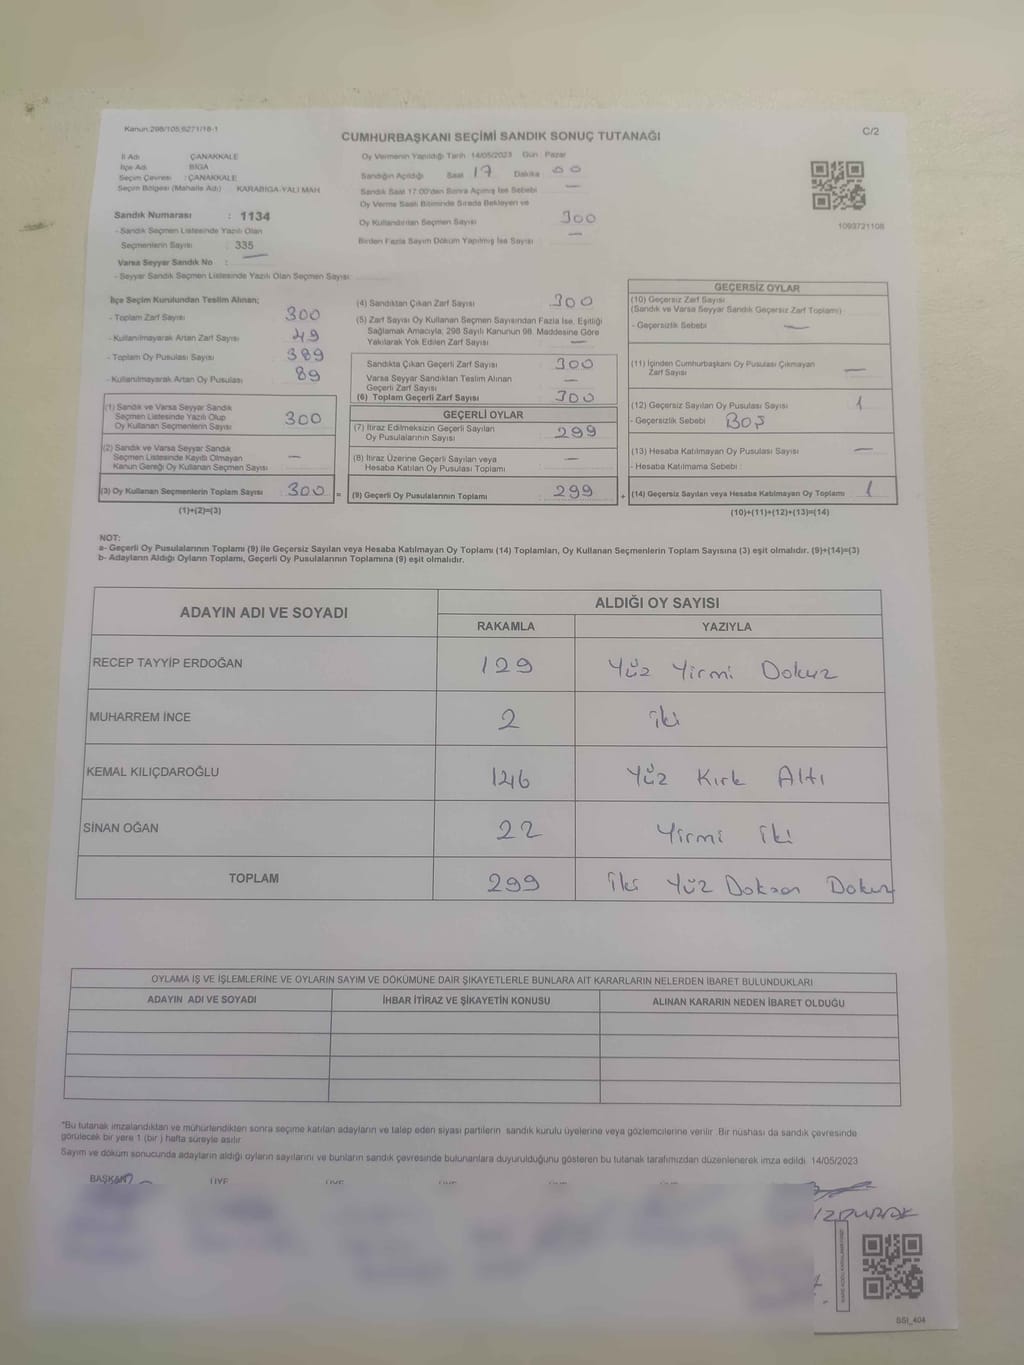 Kanun:298/105,6271/18-1
C/2
CUMHURBAŞKANI SEÇİMİ SANDIK SONUÇ TUTANAĞI
İl Adı : ÇANAKKALE
İlçe Adı : BİGA
Seçim Çevresi : ÇANAKKALE
Seçim Bölgesi (Mahalle Adı) : KARABİGA-YALI MAH
Sandık Numarası : 1134
- Sandık Seçmen Listesinde Yazılı Olan
Seçmenlerin Sayısı : 335
Varsa Seyyar Sandık No : —
- Seyyar Sandık Seçmen Listesinde Yazılı Olan Seçmen Sayısı:
Oy Vermenin Yapıldığı Tarih : 14/05/2023 Gün : Pazar
Sandığın Açıldığı Saat 17 Dakika 00
Sandık Saat 17:00'den Sonra Açılmış İse Sebebi —
Oy Verme Saati Bitiminde Sırada Bekleyen ve
Oy Kullandırılan Seçmen Sayısı 300
Birden Fazla Sayım Döküm Yapılmış İse Sayısı —
1093721108
İlçe Seçim Kurulundan Teslim Alınan;
- Toplam Zarf Sayısı 300
- Kullanılmayarak Artan Zarf Sayısı 49
- Toplam Oy Pusulası Sayısı 389
- Kullanılmayarak Artan Oy Pusulası 89
(1) Sandık ve Varsa Seyyar Sandık
Seçmen Listesinde Yazılı Olup
Oy Kullanan Seçmenlerin Sayısı 300
(2) Sandık ve Varsa Seyyar Sandık
Seçmen Listesinde Kayıtlı Olmayan
Kanun Gereği Oy Kullanan Seçmen Sayısı —
(3) Oy Kullanan Seçmenlerin Toplam Sayısı 300 =
(1)+(2)=(3)
(4) Sandıktan Çıkan Zarf Sayısı 300
(5) Zarf Sayısı Oy Kullanan Seçmen Sayısından Fazla İse, Eşitliği
Sağlamak Amacıyla; 298 Sayılı Kanunun 98. Maddesine Göre
Yakılarak Yok Edilen Zarf Sayısı —
Sandıkta Çıkan Geçerli Zarf Sayısı 300
Varsa Seyyar Sandıktan Teslim Alınan
Geçerli Zarf Sayısı —
(6) Toplam Geçerli Zarf Sayısı 300
GEÇERLİ OYLAR
(7) İtiraz Edilmeksizin Geçerli Sayılan
Oy Pusulalarının Sayısı 299
(8) İtiraz Üzerine Geçerli Sayılan veya
Hesaba Katılan Oy Pusulası Toplamı —
(9) Geçerli Oy Pusulalarının Toplamı 299 +
GEÇERSİZ OYLAR
(10) Geçersiz Zarf Sayısı
(Sandık ve Varsa Seyyar Sandık Geçersiz Zarf Toplamı)
- Geçersizlik Sebebi —
(11) İçinden Cumhurbaşkanı Oy Pusulası Çıkmayan
Zarf Sayısı —
(12) Geçersiz Sayılan Oy Pusulası Sayısı 1
- Geçersizlik Sebebi BOŞ
(13) Hesaba Katılmayan Oy Pusulası Sayısı —
- Hesaba Katılmama Sebebi :
(14) Geçersiz Sayılan veya Hesaba Katılmayan Oy Toplamı 1
(10)+(11)+(12)+(13)=(14)
NOT:
a- Geçerli Oy Pusulalarının Toplamı (9) ile Geçersiz Sayılan veya Hesaba Katılmayan Oy Toplamı (14) Toplamları, Oy Kullanan Seçmenlerin Toplam Sayısına (3) eşit olmalıdır. (9)+(14)=(3)
b- Adayların Aldığı Oyların Toplamı, Geçerli Oy Pusulalarının Toplamına (9) eşit olmalıdır.
ADAYIN ADI VE SOYADI
ALDIĞI OY SAYISI
RAKAMLA YAZIYLA
RECEP TAYYİP ERDOĞAN 129 Yüz Yirmi Dokuz
MUHARREM İNCE 2 iki
KEMAL KILIÇDAROĞLU 146 Yüz Kırk Altı
SİNAN OĞAN 22 Yirmi iki
TOPLAM 299 iki Yüz Doksan Dokuz
OYLAMA İŞ VE İŞLEMLERİNE VE OYLARIN SAYIM VE DÖKÜMÜNE DAİR ŞİKAYETLERLE BUNLARA AİT KARARLARIN NELERDEN İBARET BULUNDUKLARI
ADAYIN ADI VE SOYADI İHBAR İTİRAZ VE ŞİKAYETİN KONUSU ALINAN KARARIN NEDEN İBARET OLDUĞU
*Bu tutanak imzalandıktan ve mühürlendikten sonra seçime katılan adayların ve talep eden siyasi partilerin sandık kurulu üyelerine veya gözlemcilerine verilir. Bir nüshası da sandık çevresinde
görülecek bir yere 1 (bir ) hafta süreyle asılır.
Sayım ve döküm sonucunda adayların aldığı oyların sayılarını ve bunların sandık çevresinde bulunanlara duyurulduğunu gösteren bu tutanak tarafımızdan düzenlenerek imza edildi. 14/05/2023
BAŞKAN
SSI_404